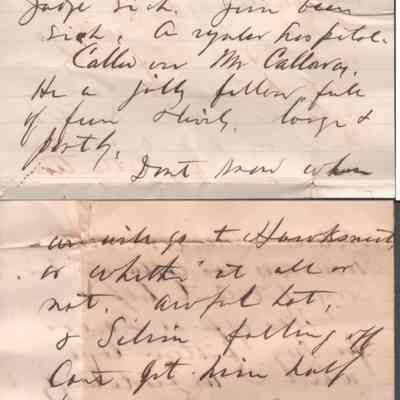 Judge Sick. Jim been
Sick. A regular hospital.
Called on Mr Callaway.
He a jolly fellow, full
of fun & lively, large &
portly,
Dont know when
we will go to Hawksnest,
or whether at all or
not. awful hot,
& Silvin falling off
Cant get him half